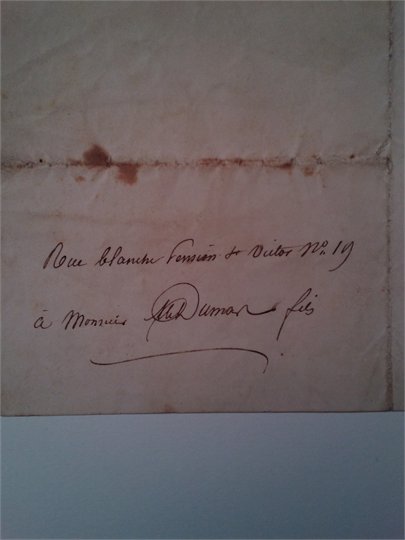 Rue blanche Pension St Victor No. 19
à Monsieur Alex Dumas fils